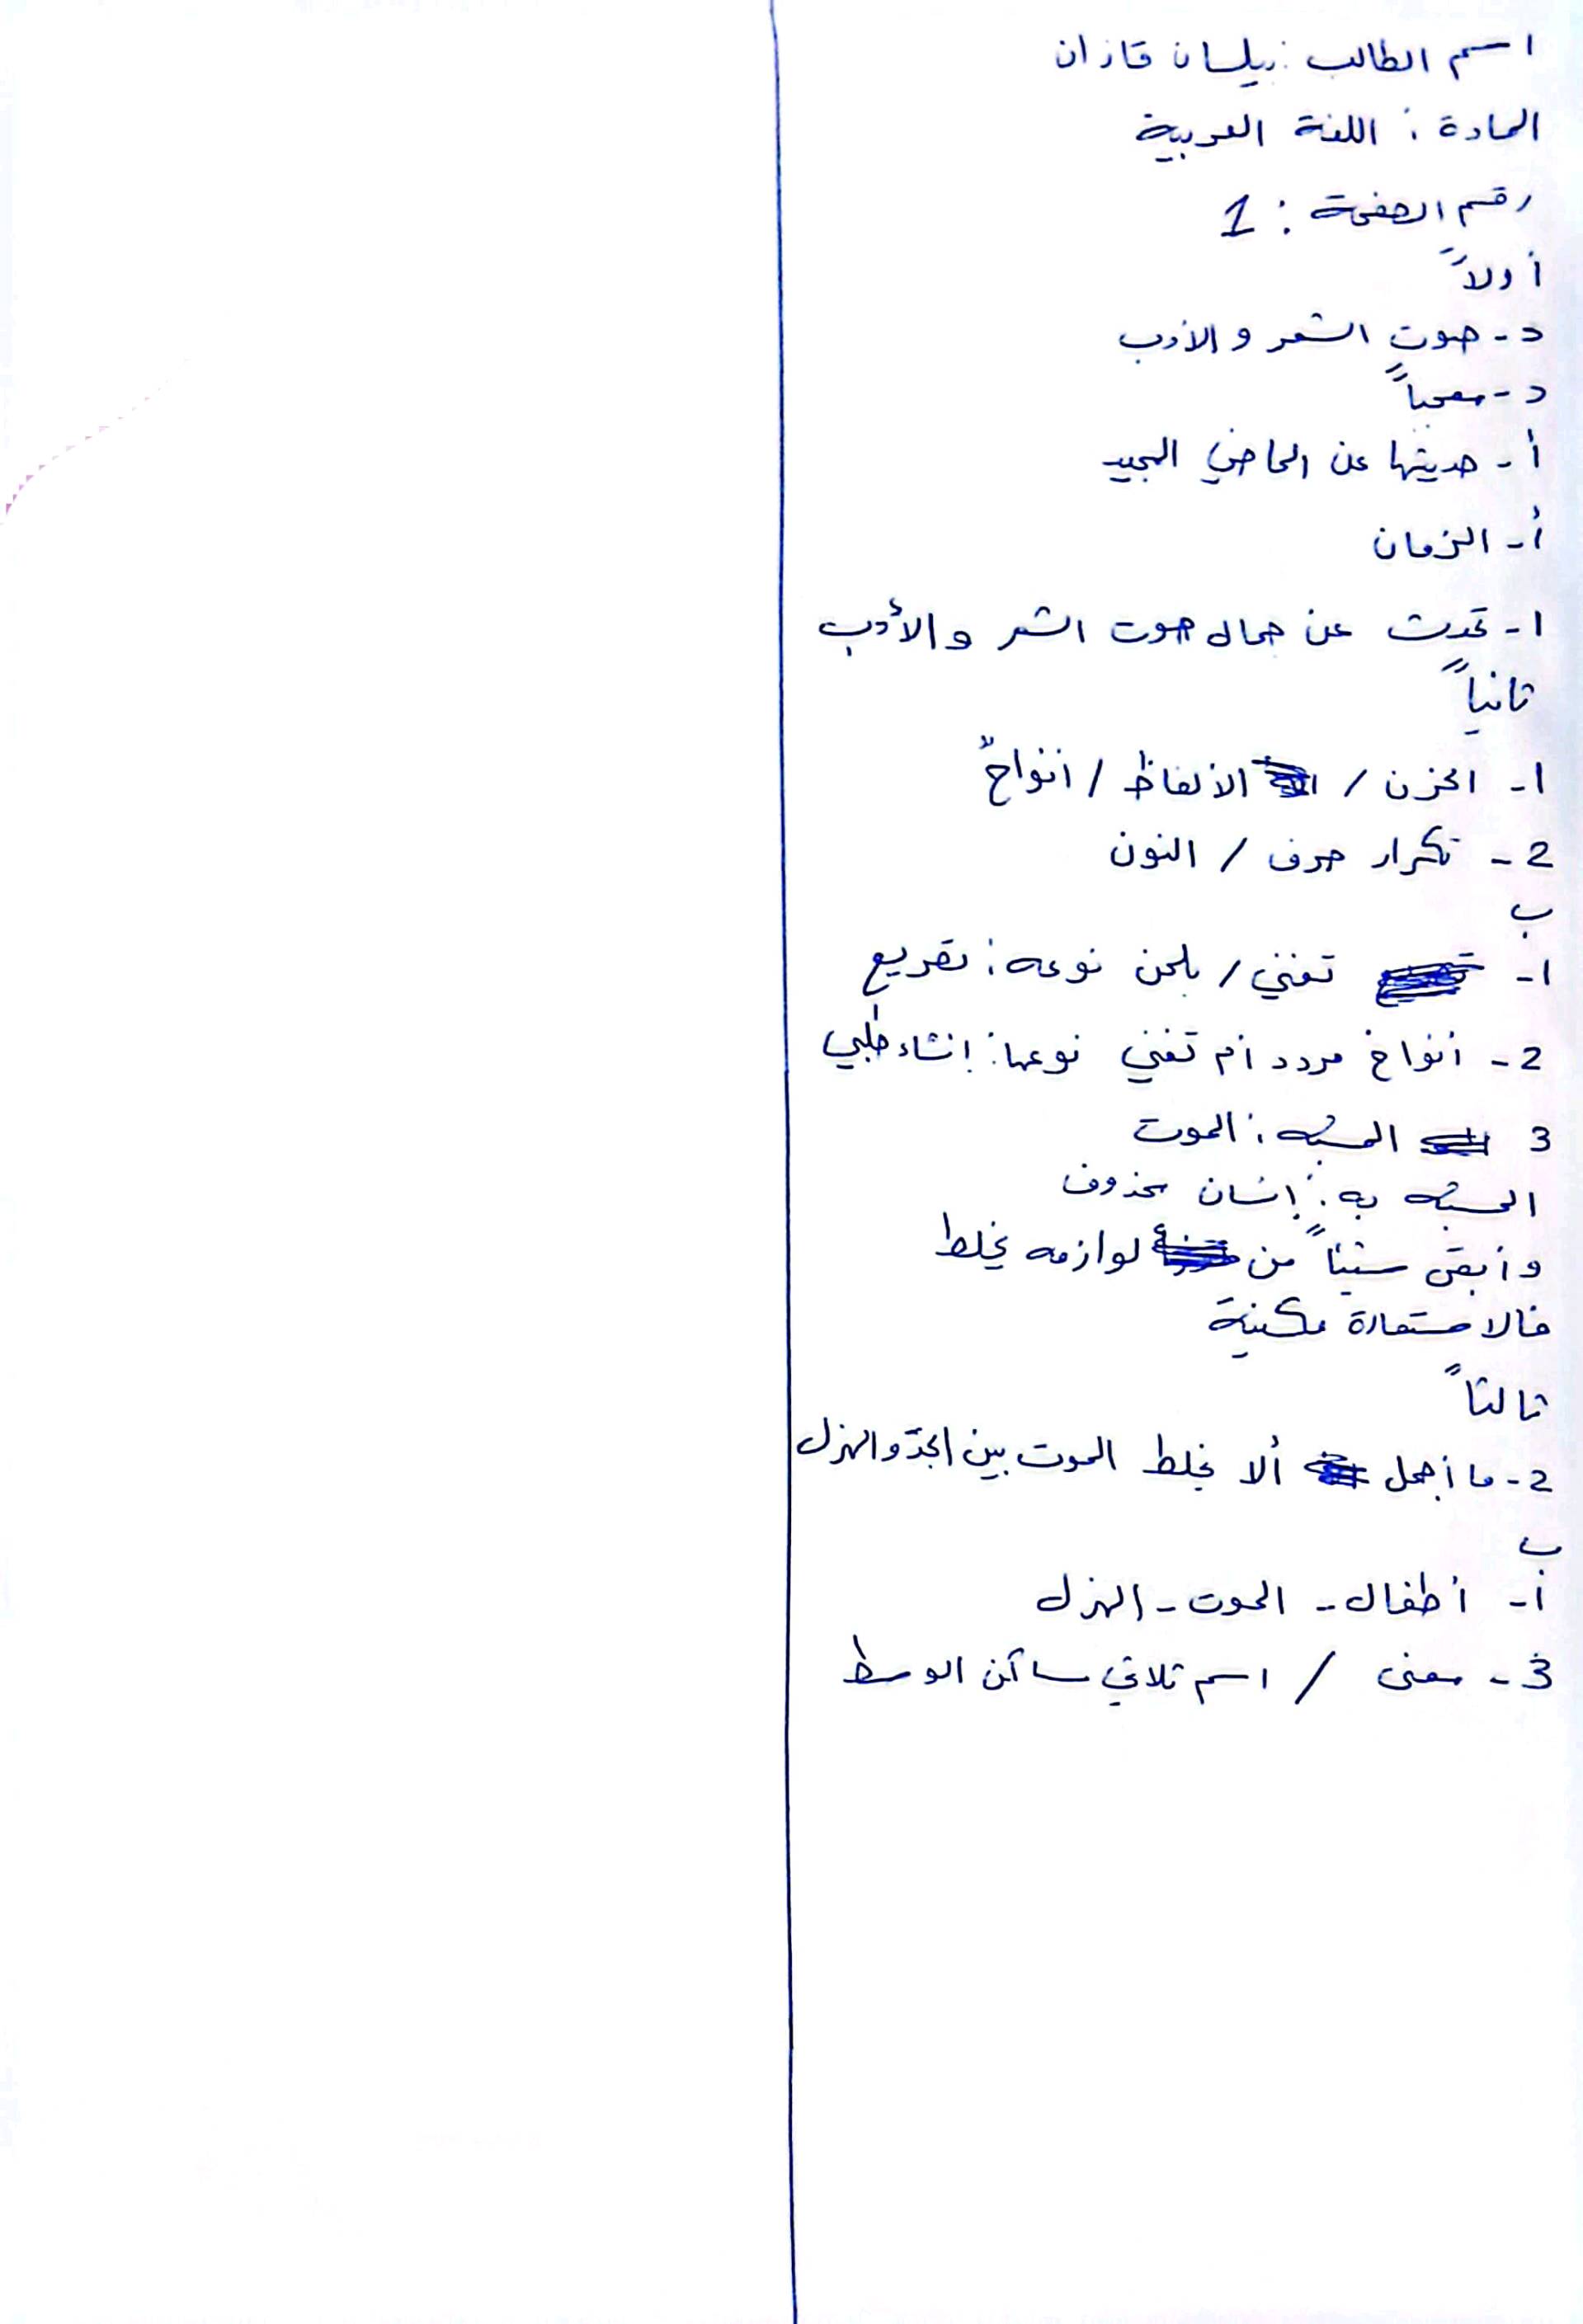 اسم الطالب: بيلسان قازان
المادة: اللغة العربية
رقم الصفحة: 1
أولاً
د- صوت الشعر و الأدب
د- معجباً
أ- حديثها عن الماضي المجيد
أ- الزمان
1- تحدث عن جمال صوت الشعر و الأدب
ثانياً
1- الحزن / الألفاظ / أنواحٌ
2- تكرار حرف / النون
ب
1- تغني / بلحن نوعه: تصريع
2- أنواح مردد أم تغني نوعها: إنشاء طلبي
3 المشبه: الموت
المشبه به: إنسان محذوف
وأبقى شيئاً من لوازمه يخلط
فالاستعارة مكنية
ثالثاً
2- ما أجمل ألا يخلط الموت بين الجدّ والهزل
ب
أ- أطفال - الموت - الهزل
3- معنى / اسم ثلاثي ساكن الوسط